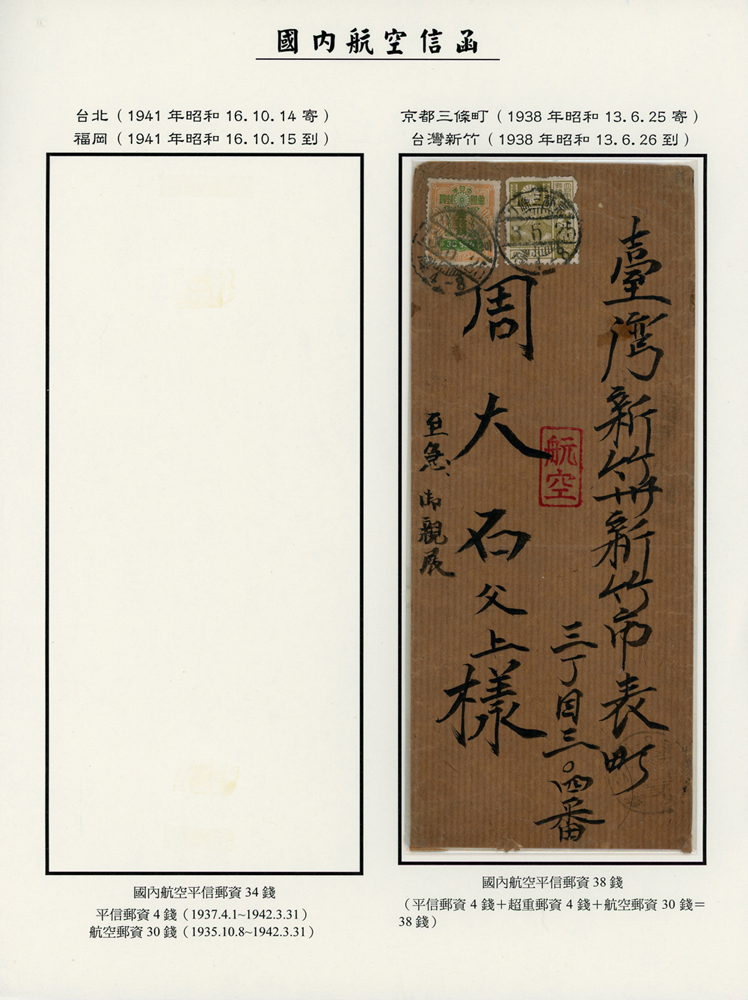 國內航空信函
台北（1941 年昭和 16.10.14 寄）
福岡（1941 年昭和 16.10.15 到）
京都三條町（1938 年昭和 13.6.25 寄）
台灣新竹（1938 年昭和 13.6.26 到）
臺灣新竹州新竹市表町
三丁目三〇四番
航空
周大石父上樣
至急、御親展
國內航空平信郵資 34 錢
平信郵資 4 錢（1937.4.1~1942.3.31）
航空郵資 30 錢（1935.10.8~1942.3.31）
國內航空平信郵資 38 錢
（平信郵資 4 錢＋超重郵資 4 錢＋航空郵資 30 錢＝
38 錢）